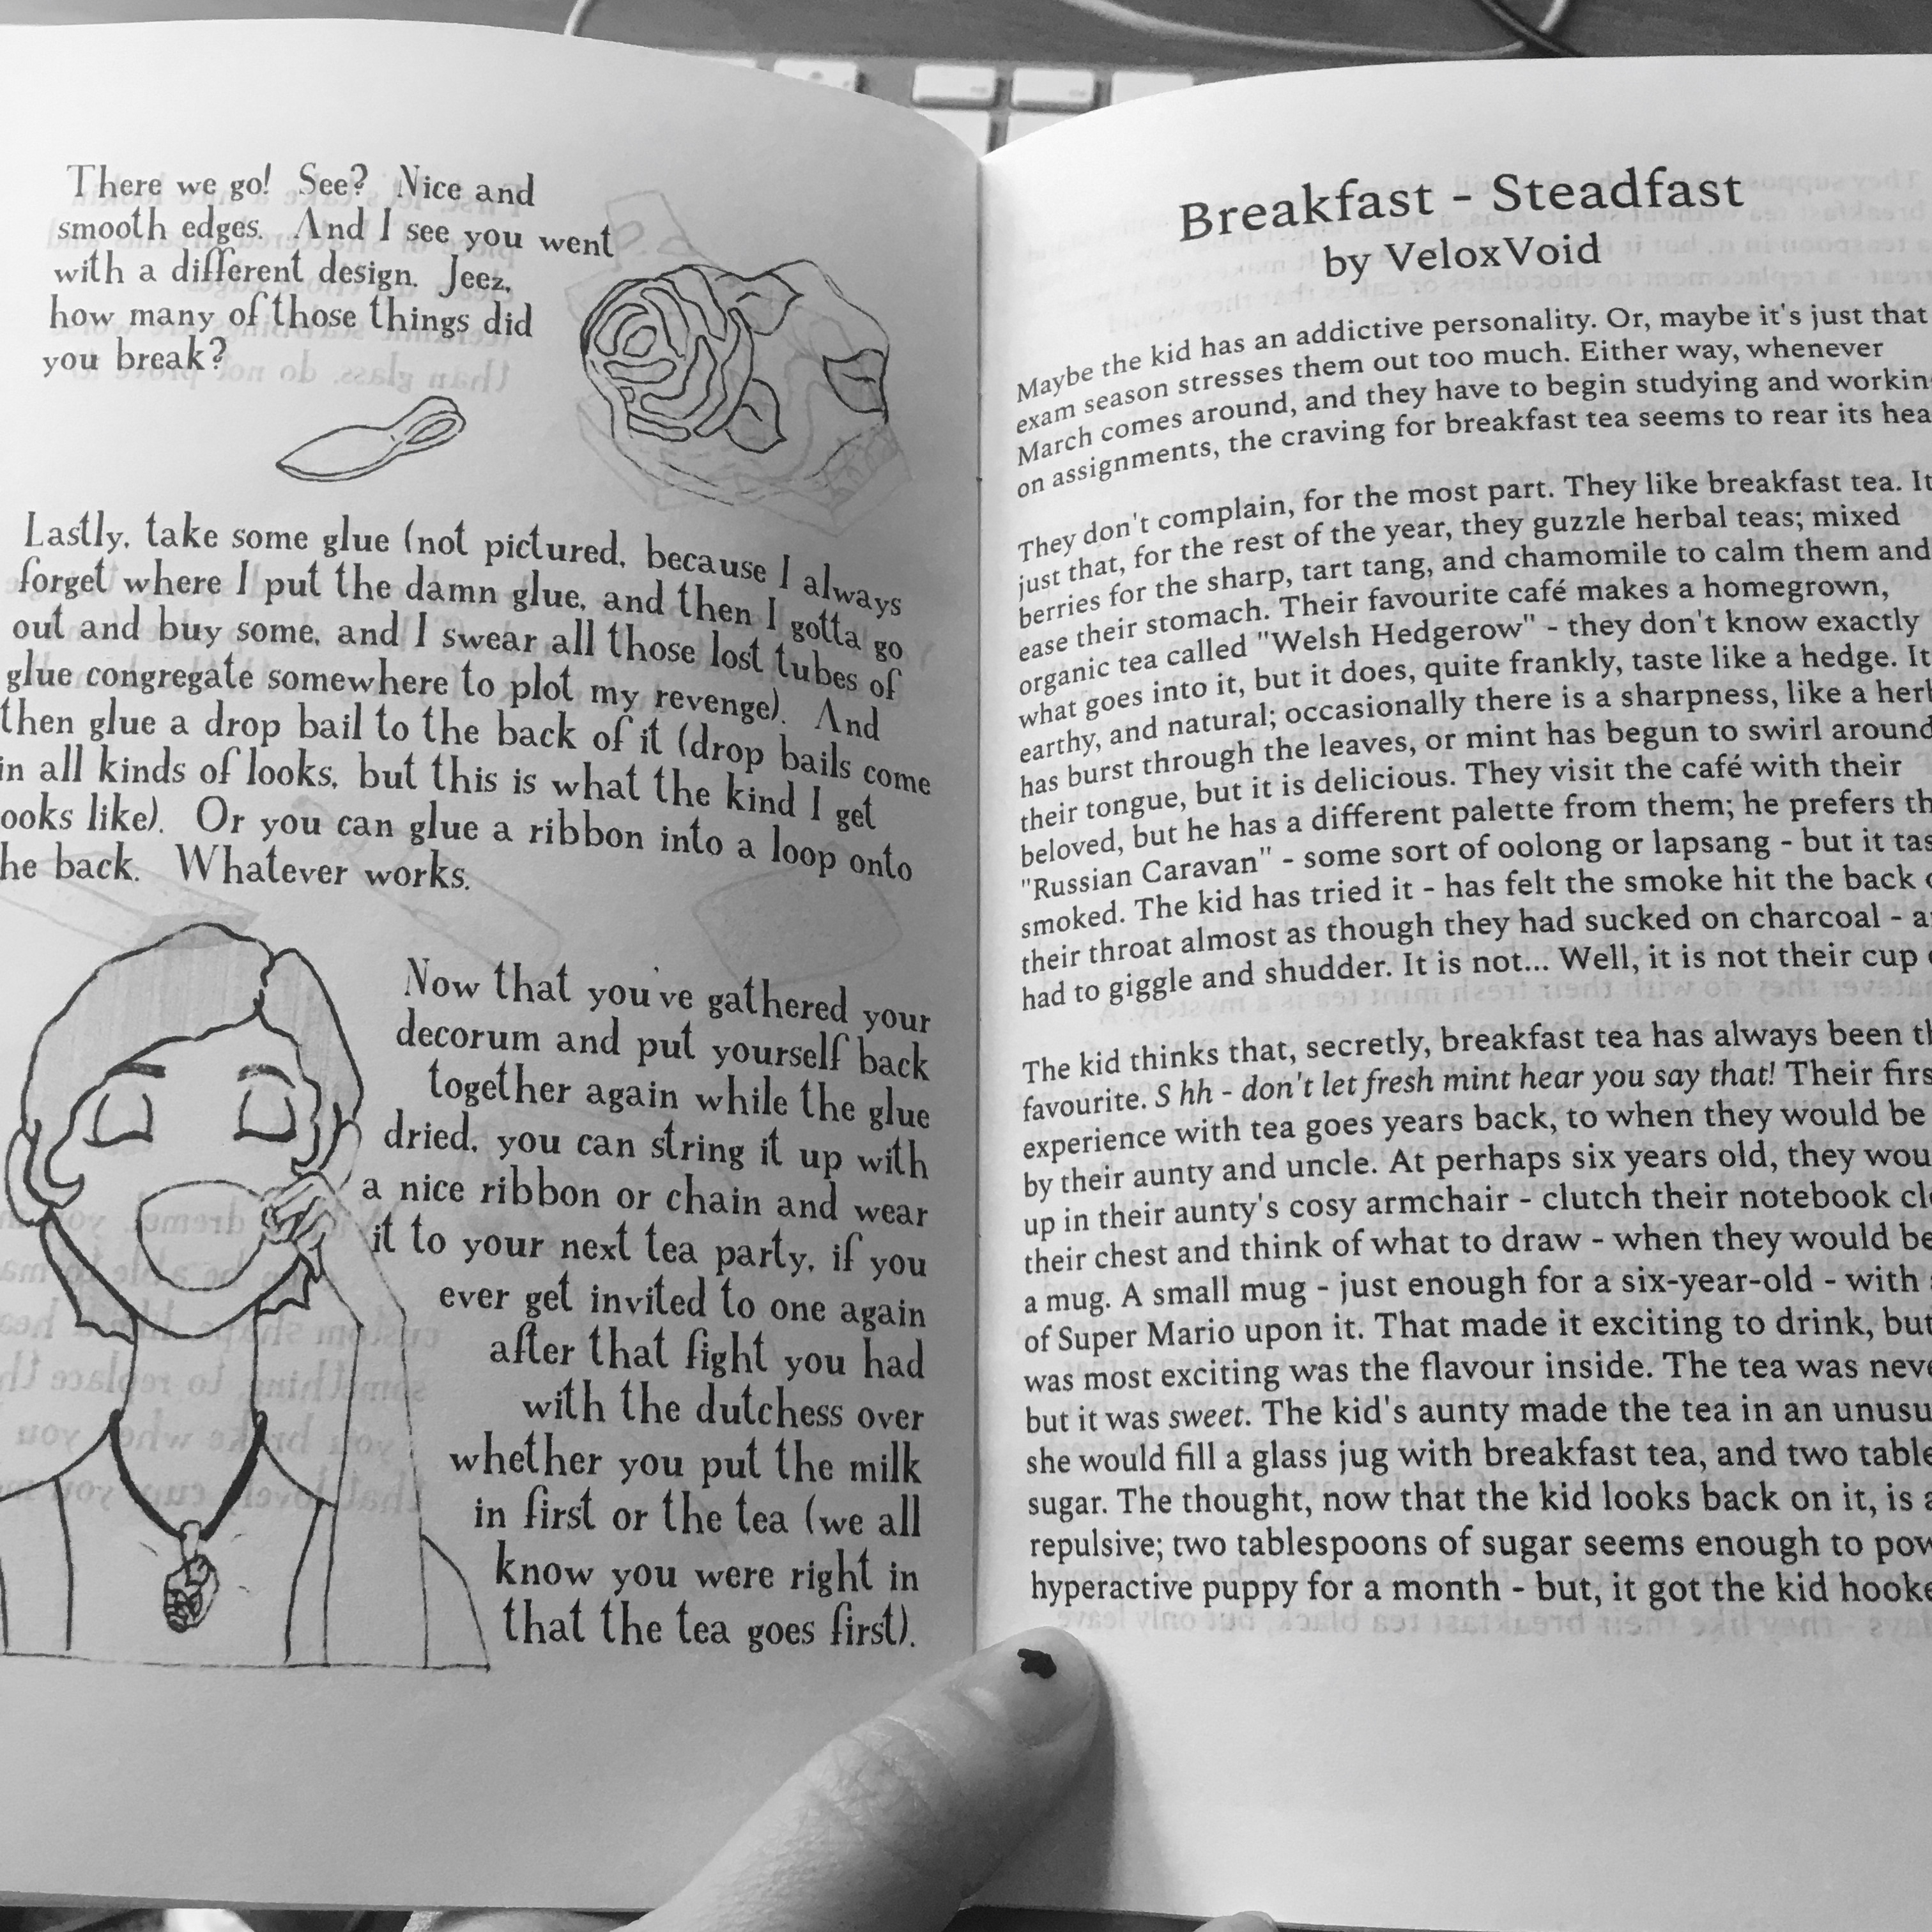 There we go! See? Nice and
smooth edges. And I see you went
with a different design. Jeez,
how many of those things did
you break?
Lastly, take some glue (not pictured, because I always
forget where I put the damn glue, and then I gotta go
out and buy some, and I swear all those lost tubes of
glue congregate somewhere to plot my revenge). And
then glue a drop bail to the back of it (drop bails come
in all kinds of looks, but this is what the kind I get
ooks like). Or you can glue a ribbon into a loop onto
he back. Whatever works.
Now that you've gathered your
decorum and put yourself back
together again while the glue
dried, you can string it up with
a nice ribbon or chain and wear
it to your next tea party, if you
ever get invited to one again
after that fight you had
with the dutchess over
whether you put the milk
in first or the tea (we all
know you were right in
that the tea goes first).
Breakfast - Steadfast
by VeloxVoid
Maybe the kid has an addictive personality. Or, maybe it's just that
exam season stresses them out too much. Either way, whenever
March comes around, and they have to begin studying and workin
on assignments, the craving for breakfast tea seems to rear its hea
They don't complain, for the most part. They like breakfast tea. It
just that, for the rest of the year, they guzzle herbal teas; mixed
berries for the sharp, tart tang, and chamomile to calm them and
ease their stomach. Their favourite café makes a homegrown,
organic tea called "Welsh Hedgerow" - they don't know exactly
what goes into it, but it does, quite frankly, taste like a hedge. It
earthy, and natural; occasionally there is a sharpness, like a herb
has burst through the leaves, or mint has begun to swirl around
their tongue, but it is delicious. They visit the café with their
beloved, but he has a different palette from them; he prefers th
"Russian Caravan" - some sort of oolong or lapsang - but it tas
smoked. The kid has tried it - has felt the smoke hit the back o
their throat almost as though they had sucked on charcoal - a
had to giggle and shudder. It is not... Well, it is not their cup
The kid thinks that, secretly, breakfast tea has always been th
favourite. S hh - don't let fresh mint hear you say that! Their firs
experience with tea goes years back, to when they would be
by their aunty and uncle. At perhaps six years old, they wou
up in their aunty's cosy armchair - clutch their notebook cl
their chest and think of what to draw - when they would be
a mug. A small mug - just enough for a six-year-old - with
of Super Mario upon it. That made it exciting to drink, but
was most exciting was the flavour inside. The tea was neve
but it was sweet. The kid's aunty made the tea in an unusu
she would fill a glass jug with breakfast tea, and two table
sugar. The thought, now that the kid looks back on it, is a
repulsive; two tablespoons of sugar seems enough to pow
hyperactive puppy for a month - but, it got the kid hooke